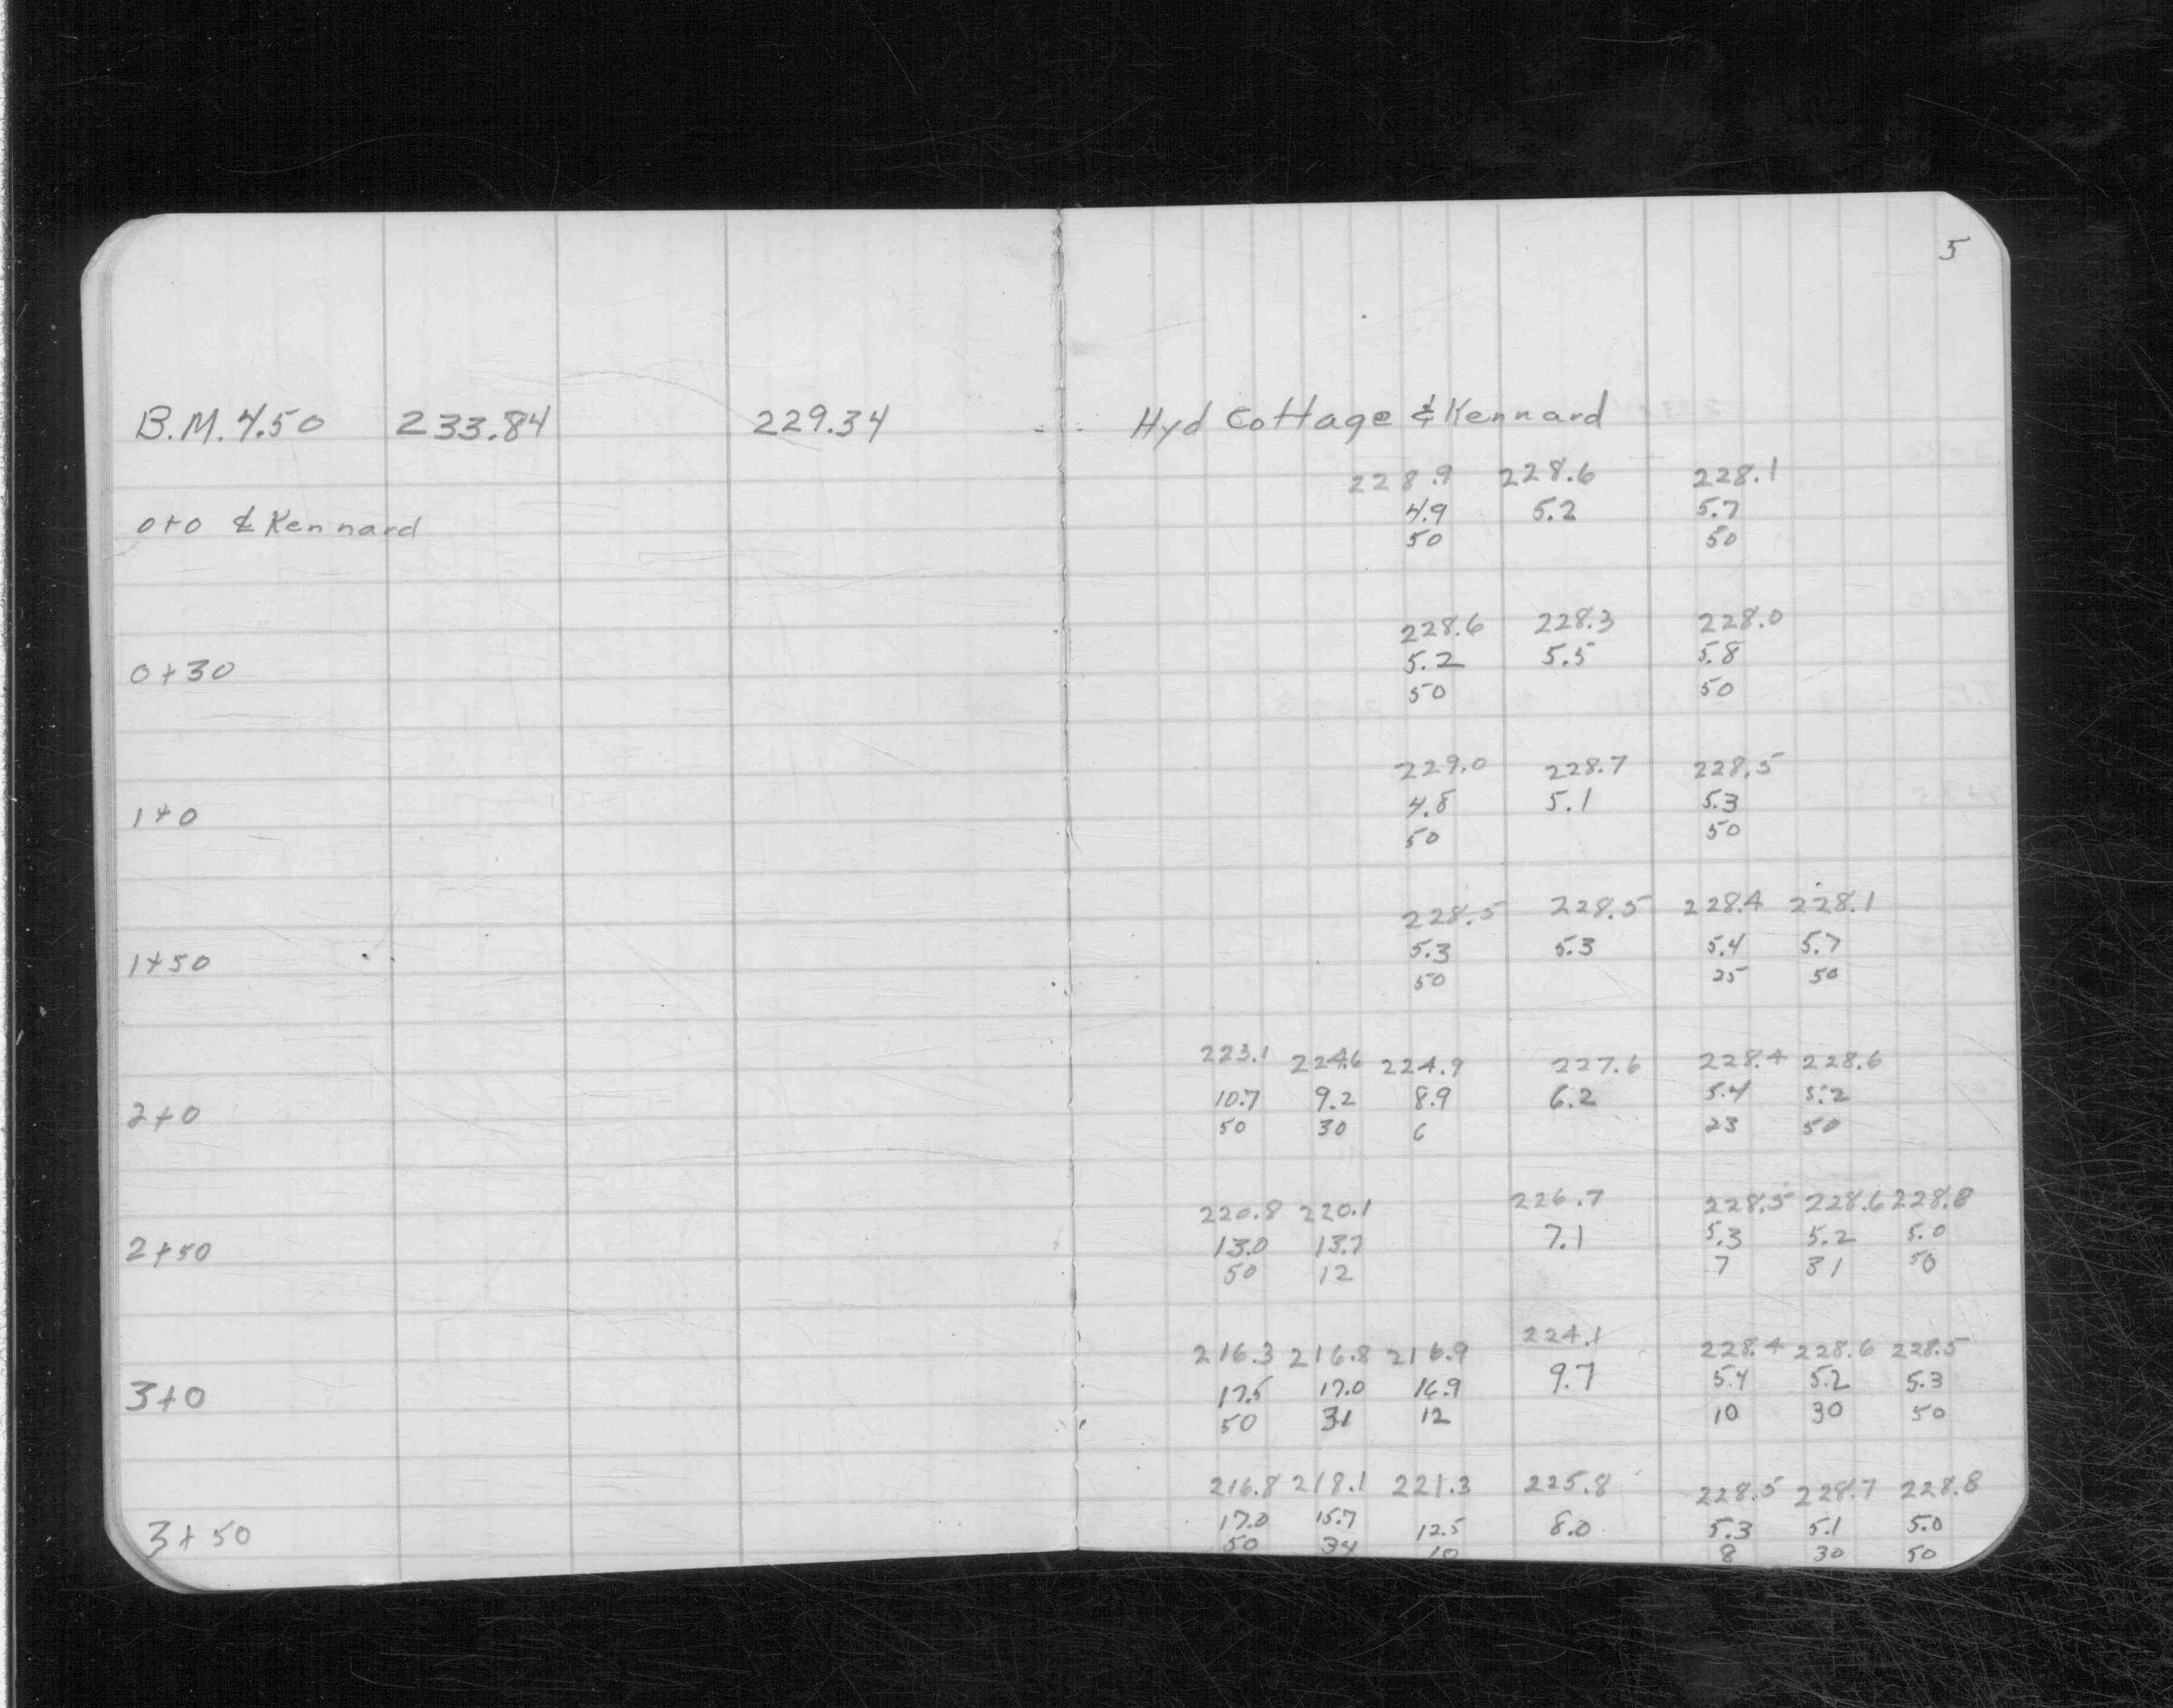 5
B.M. 4.50 233.84 229.34 Hyd Cottage & Kennard
228.9 228.6 228.1
0+0 ⅊ Kennard 4.9 5.2 5.7
50 50
228.6 228.3 228.0
0+30 5.2 5.5 5.8
50 50
229.0 228.7 228.5
1+0 4.8 5.1 5.3
50 50
228.5 228.5 228.4 228.1
1+50 5.3 5.3 5.4 5.7
50 25 50
223.1 224.6 224.9 227.6 228.4 228.6
2+0 10.7 9.2 8.9 6.2 5.4 5.2
50 30 6 23 50
220.8 220.1 226.7 228.5 228.6 228.8
2+50 13.0 13.7 7.1 5.3 5.2 5.0
50 12 7 31 50
216.3 216.8 216.9 224.1 228.4 228.6 228.5
3+0 17.5 17.0 16.9 9.7 5.4 5.2 5.3
50 31 12 10 30 50
216.8 218.1 221.3 225.8 228.5 228.7 228.8
3+50 17.0 15.7 12.5 8.0 5.3 5.1 5.0
50 34 10 8 30 50